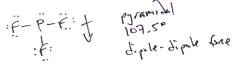 :F̈-P̈-F̈:
:F̈:
pyramidal
107.5°
dipole-dipole force